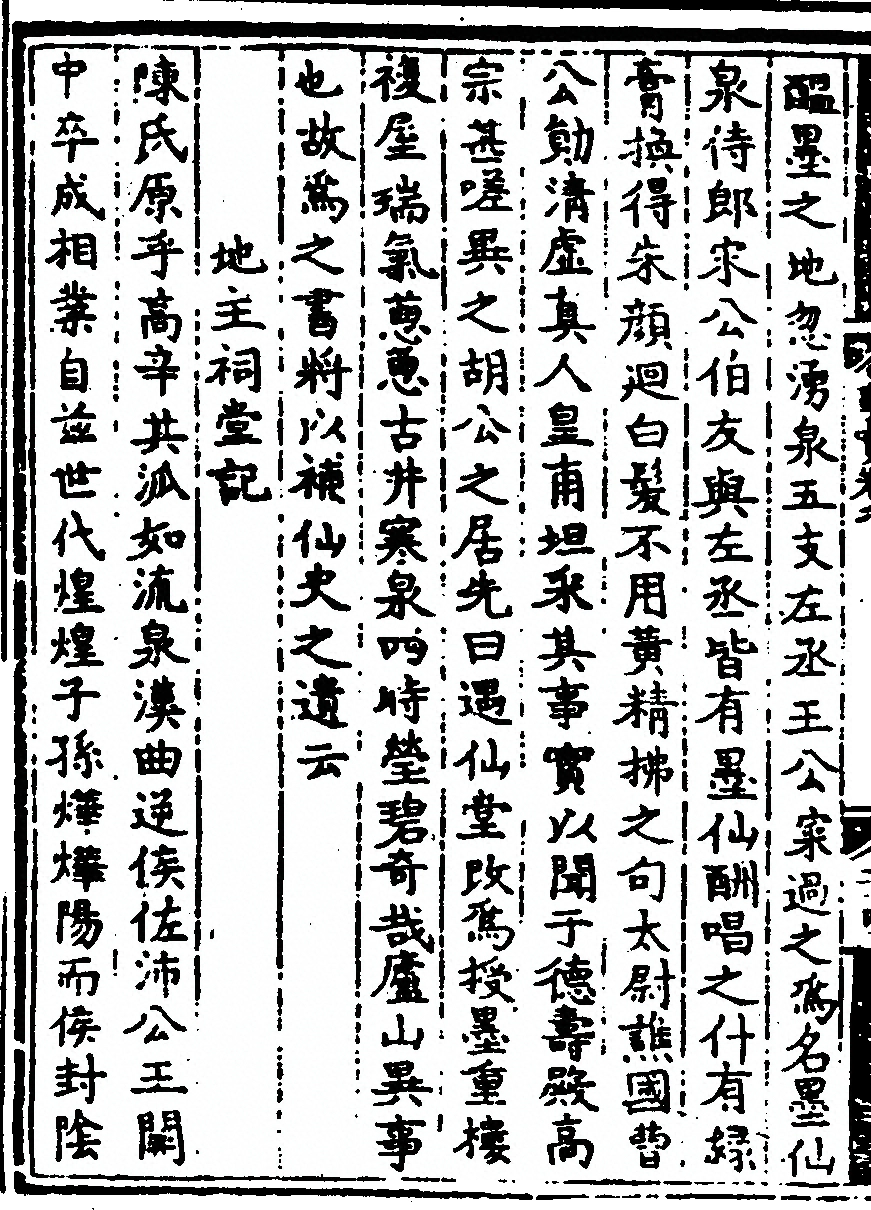 醖墨之地忽湧泉五支左丞王公寀過之爲名墨仙
泉侍郎宋公伯友與左丞皆有墨仙酬唱之什有綠
膏換得朱顔迴白髮不用黃精拂之句太尉譙國曹
公勛清虛真人皇甫坦釆其事實以聞于德壽殿高
宗甚嗟異之胡公之居先曰遇仙堂改爲授墨重樓
複屋瑞氣蔥蔥古井寒泉四時瑩碧奇哉廬山異事
也故爲之書將以補仙史之遺云
地主祠堂記
陳氏原乎高辛其派如流泉漢曲逆侯佐沛公王關
中卒成相業自茲世代煌煌子孫燁燁陽而侯封陰